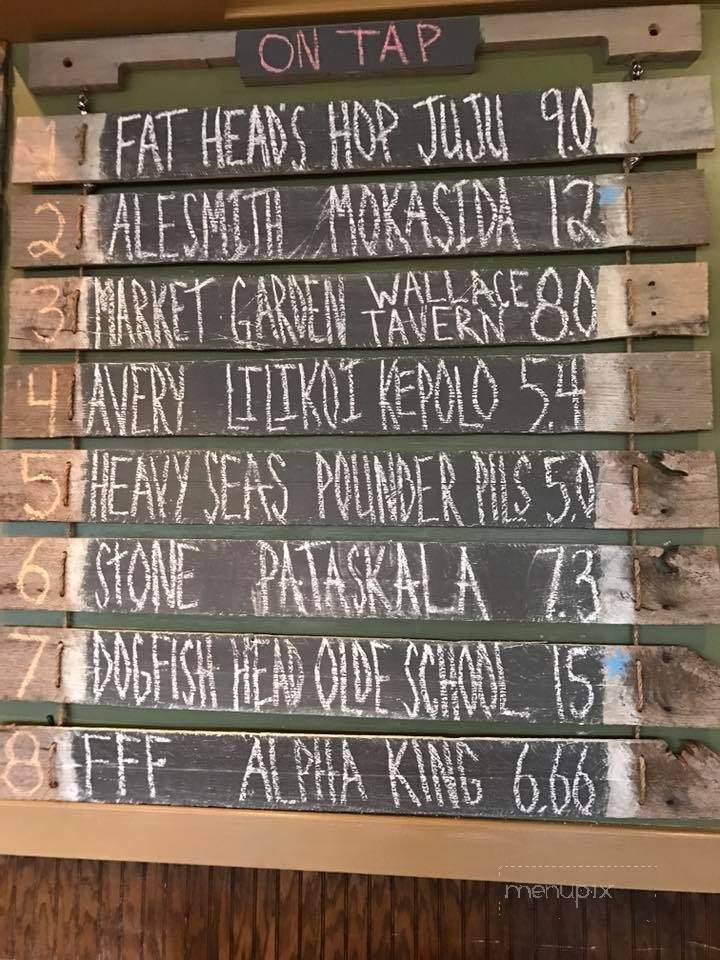 ON TAP
1 FAT HEAD'S HOP JUJU 9.0
2 ALESMITH MOKASIDA 12
3 MARKET GARDEN WALLACE TAVERN 8.0
4 AVERY LILIKOI KEPOLO 5.4
5 HEAVY SEAS POUNDER PILS 5.0
6 STONE PATASKALA 7.3
7 DOGFISH HEAD OLDE SCHOOL 15
8 FFF ALPHA KING 6.66
menupix